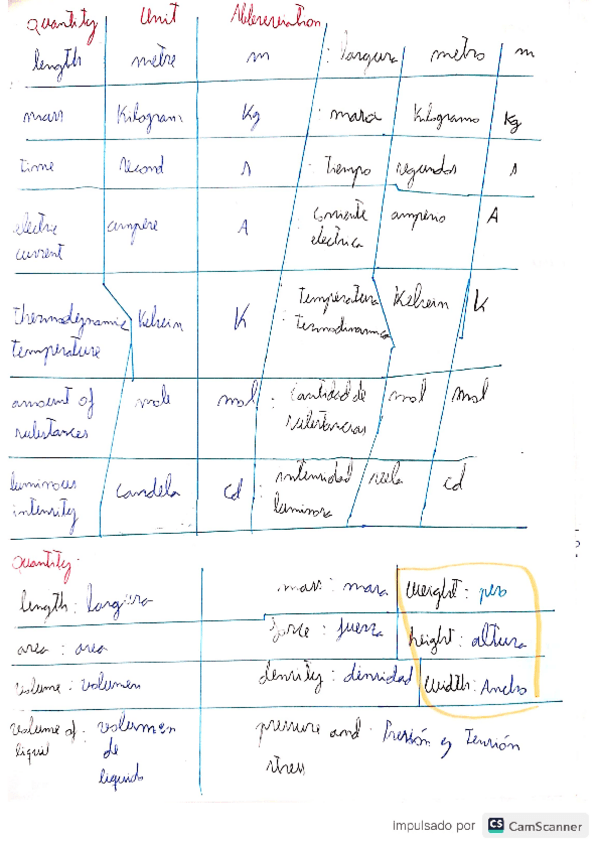 quantity Unit Abbrerveriation
length metre m : largura metro m
mass Kilogram Kg : masa Kilogramo Kg
time second s : tiempo segundos s
electric current ampere A : corriente electrica amperio A
thermodynamic temperature Kelvin K : temperatura termodinamica Kelvin K
amount of substances mole mol : cantidad de substancias mol mol
luminous intensity candela cd : intensidad luminosa cd
quantity
length : largura mass : masa weight : peso
area : area force : fuerza height : altura
volume : volumen density : densidad width : Ancho
volume of liquid : volumen de liquido pressure and stress : Presión y Tensión
Impulsado por CS CamScanner